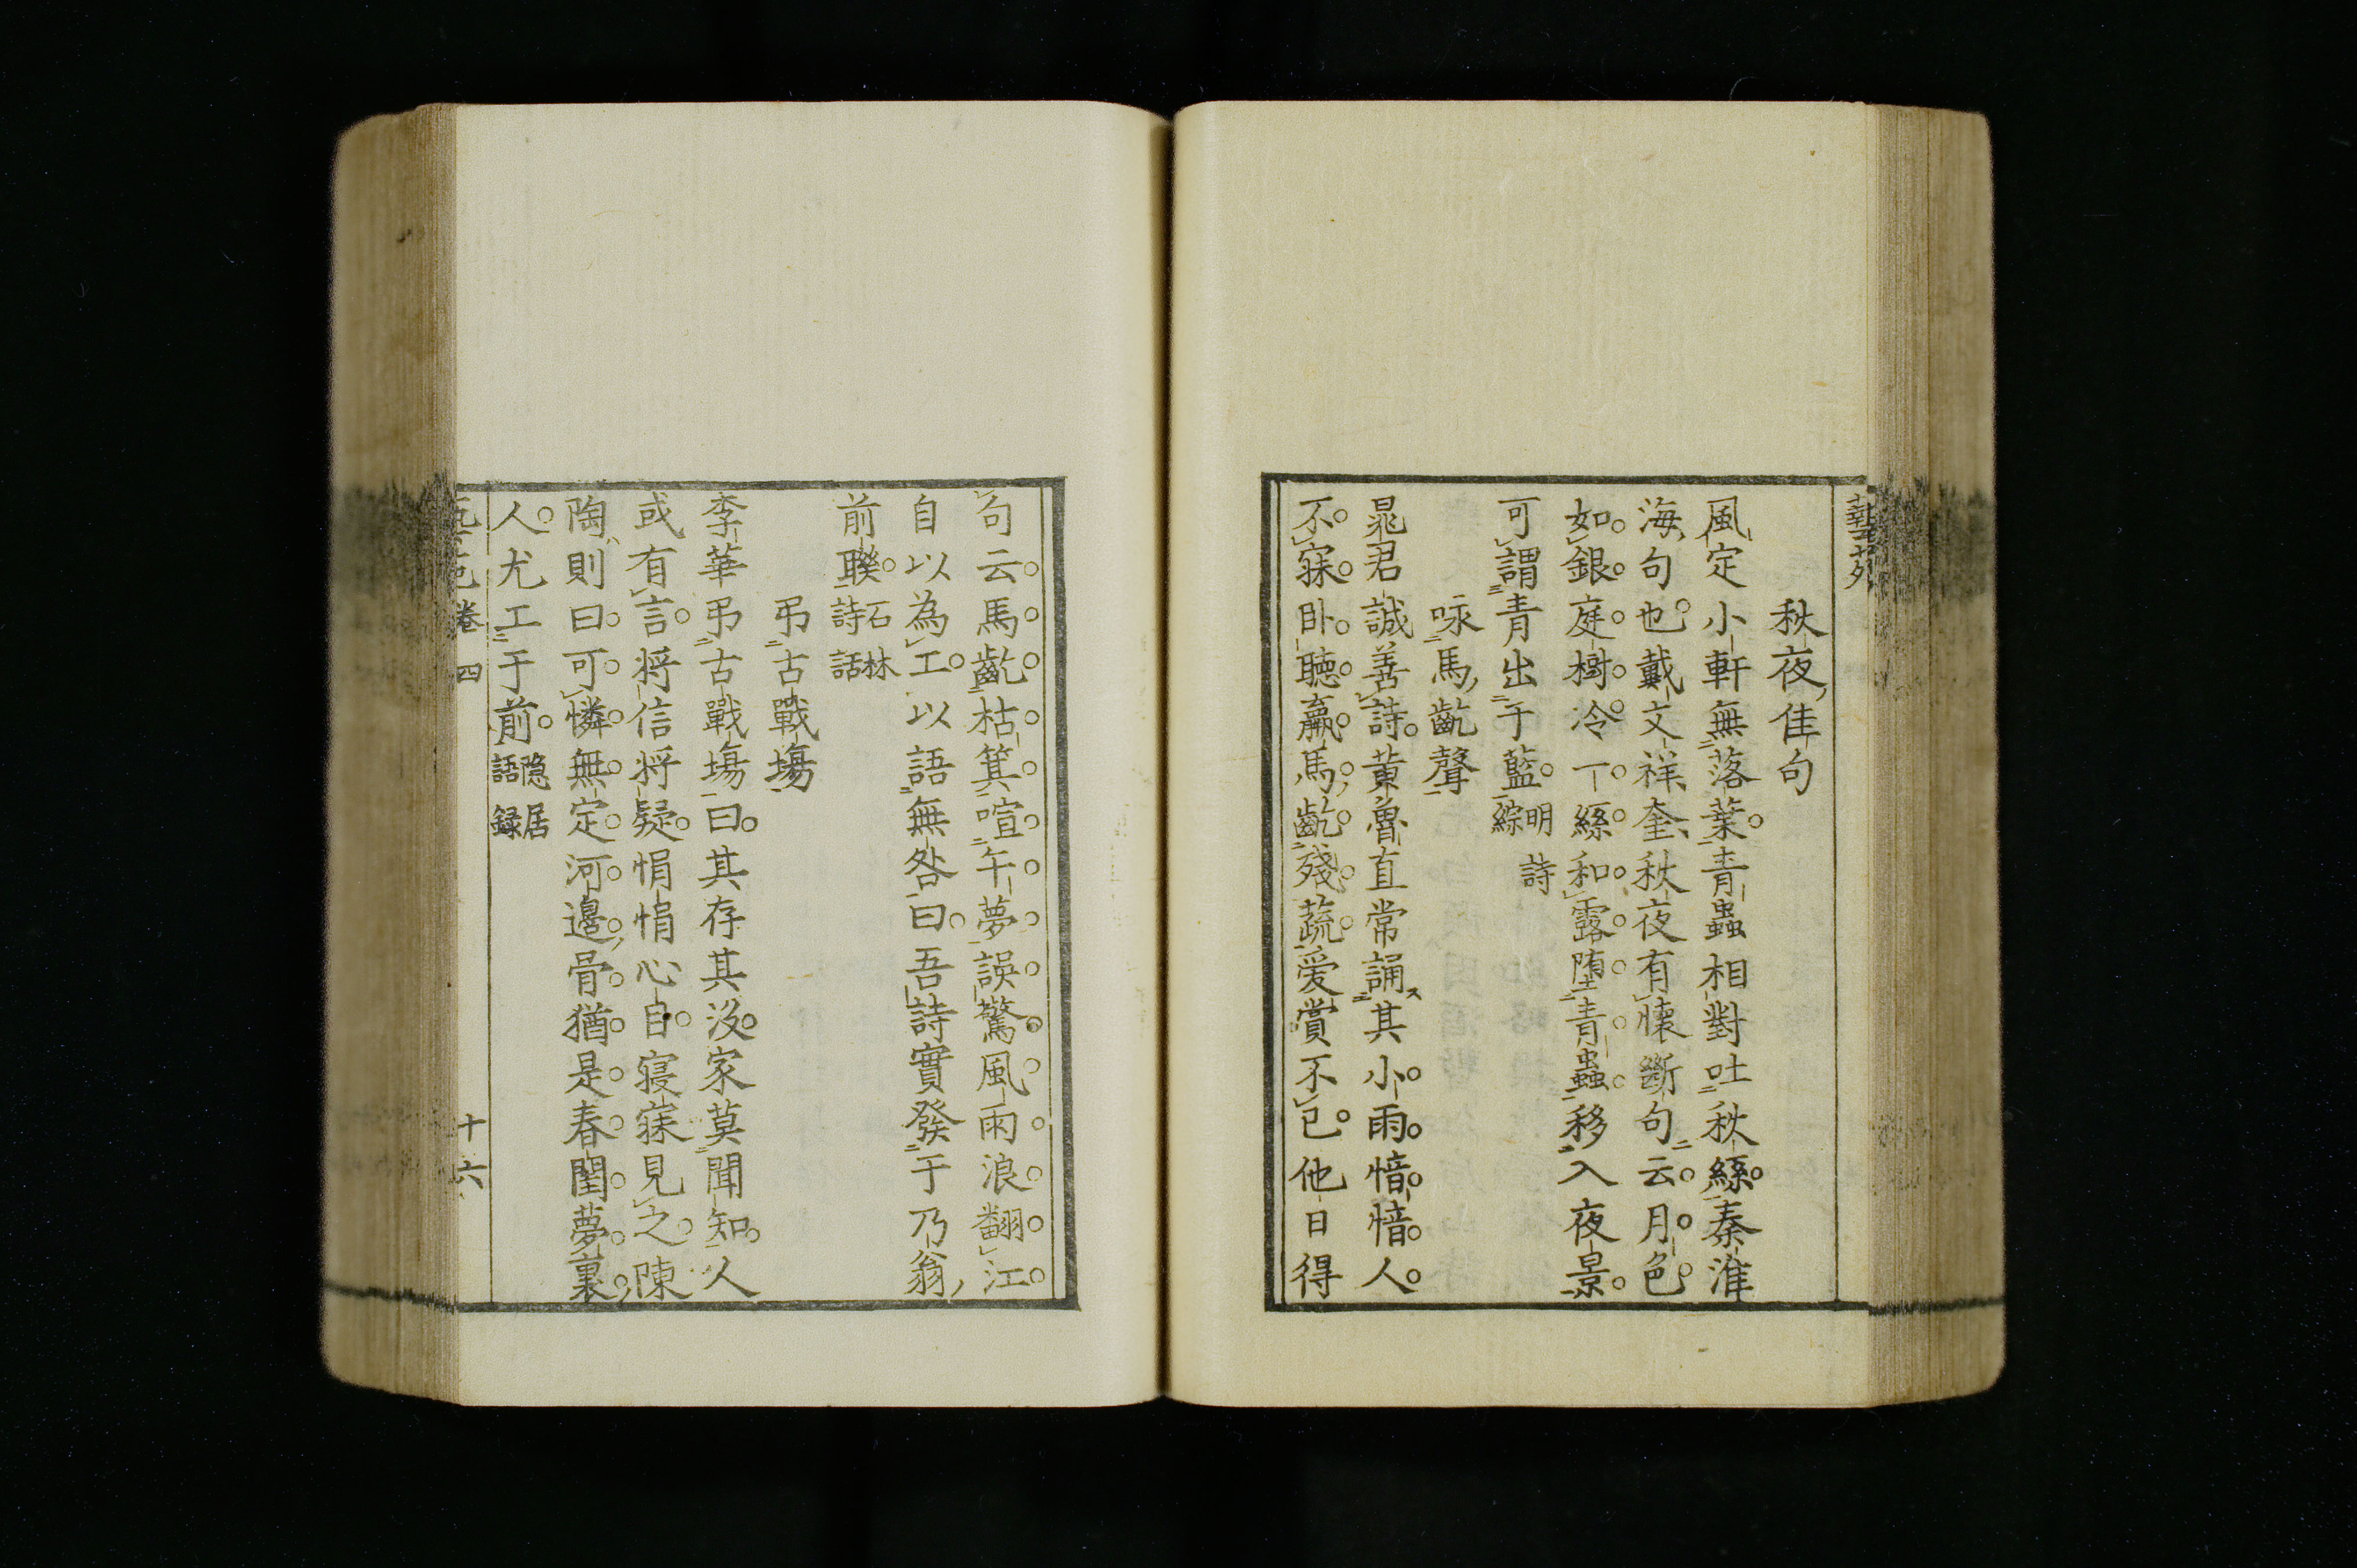 藝苑
秋夜佳句
風定小軒無落葉青蟲相對吐秋絲秦淮
海句也戴文祥奎秋夜有懐斷句云月色
如銀庭樹冷一絲和露堕青蟲移入夜景
可謂青出于藍明詩
綜
咏馬齕聲
晁君誠善詩黄魯直常誦其小雨愔愔人
不寐卧聽羸馬齕殘蔬爱賞不已他日得
句云馬齕枯箕喧午夢誤驚風雨浪翻江
自以為工以語無咎曰吾詩實發于乃翁
前聯石林
詩話
弔古戰場
李華弔古戰塲曰其存其沒家莫聞知人
或有言将信将疑悁悁心目寝寐見之陳
陶則曰可憐無定河邉骨猶是春閨夢裏
人尤工于前隐居
語録
卷四
十六